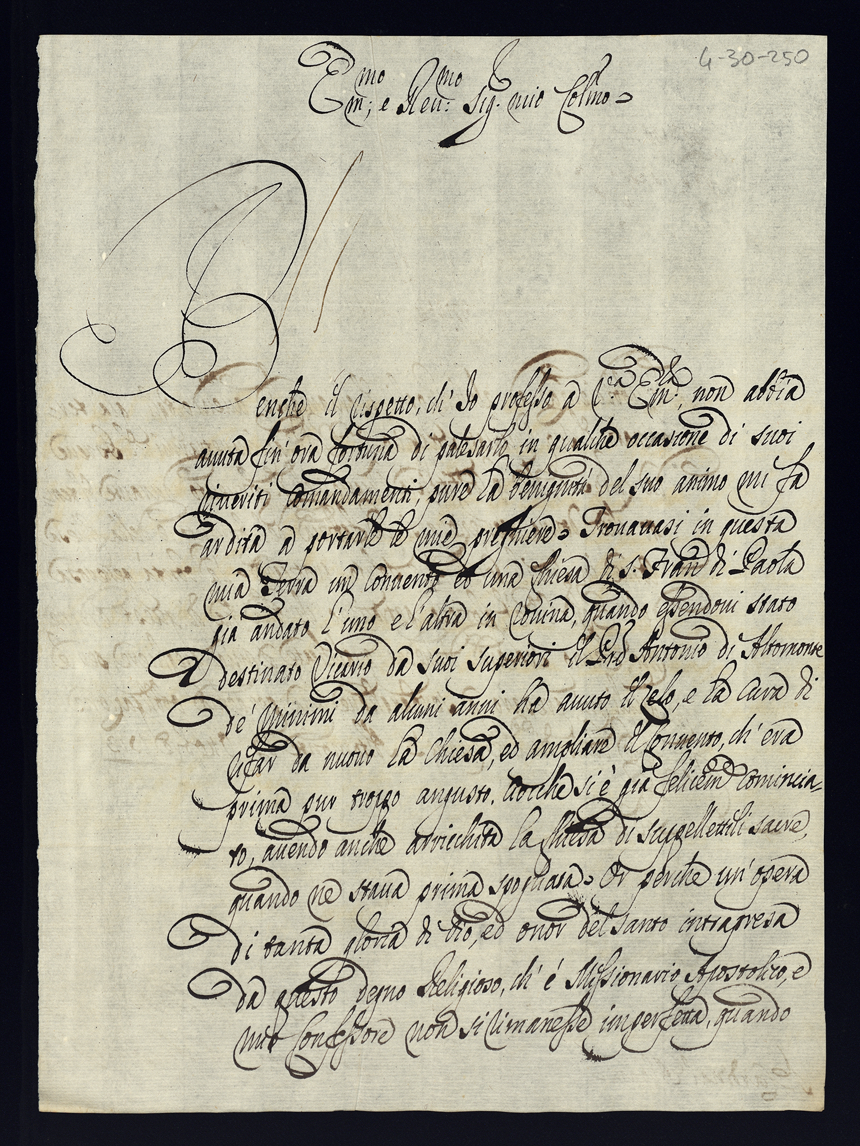 4-30-250
Em:mo e Reu:mo Sig. mio Colmo
Benche il rispetto, ch' Io professo a V.ra Em.za, non abbia
auuta fin' ora fortuna di palesarlo in qualche occasione di suoi
riueriti comandamenti, pure la benignità del suo animo mi fa
ardita a portarle le mie preghiere. Trouauasi in questa
mia Terra un Conuento ed una Chiesa di S. Fran: di Paola
già andato l'uno e l'altra in rouina, quando essendoui stato
destinato Vicario da suoi superiori il Prd Antonio di Altomonte
de' Minimi da alcuni anni hà auuto il zelo, e la cura di
rifar da nuouo la Chiesa, ed ampliare il Conuento, ch' era
prima pur troppo angusto. Locche si è già felicem. comincia-
to, auendo anche arricchita la Chiesa di suppellettili sacre,
quando ne staua prima spogliata. Or perche un'opera
di tanta gloria di Dio, ed onor del Santo intrapresa
da questo degno Religioso, ch' è Missionario Apostolico, e
mio Confessore non si rimanesse imperfetta, quando